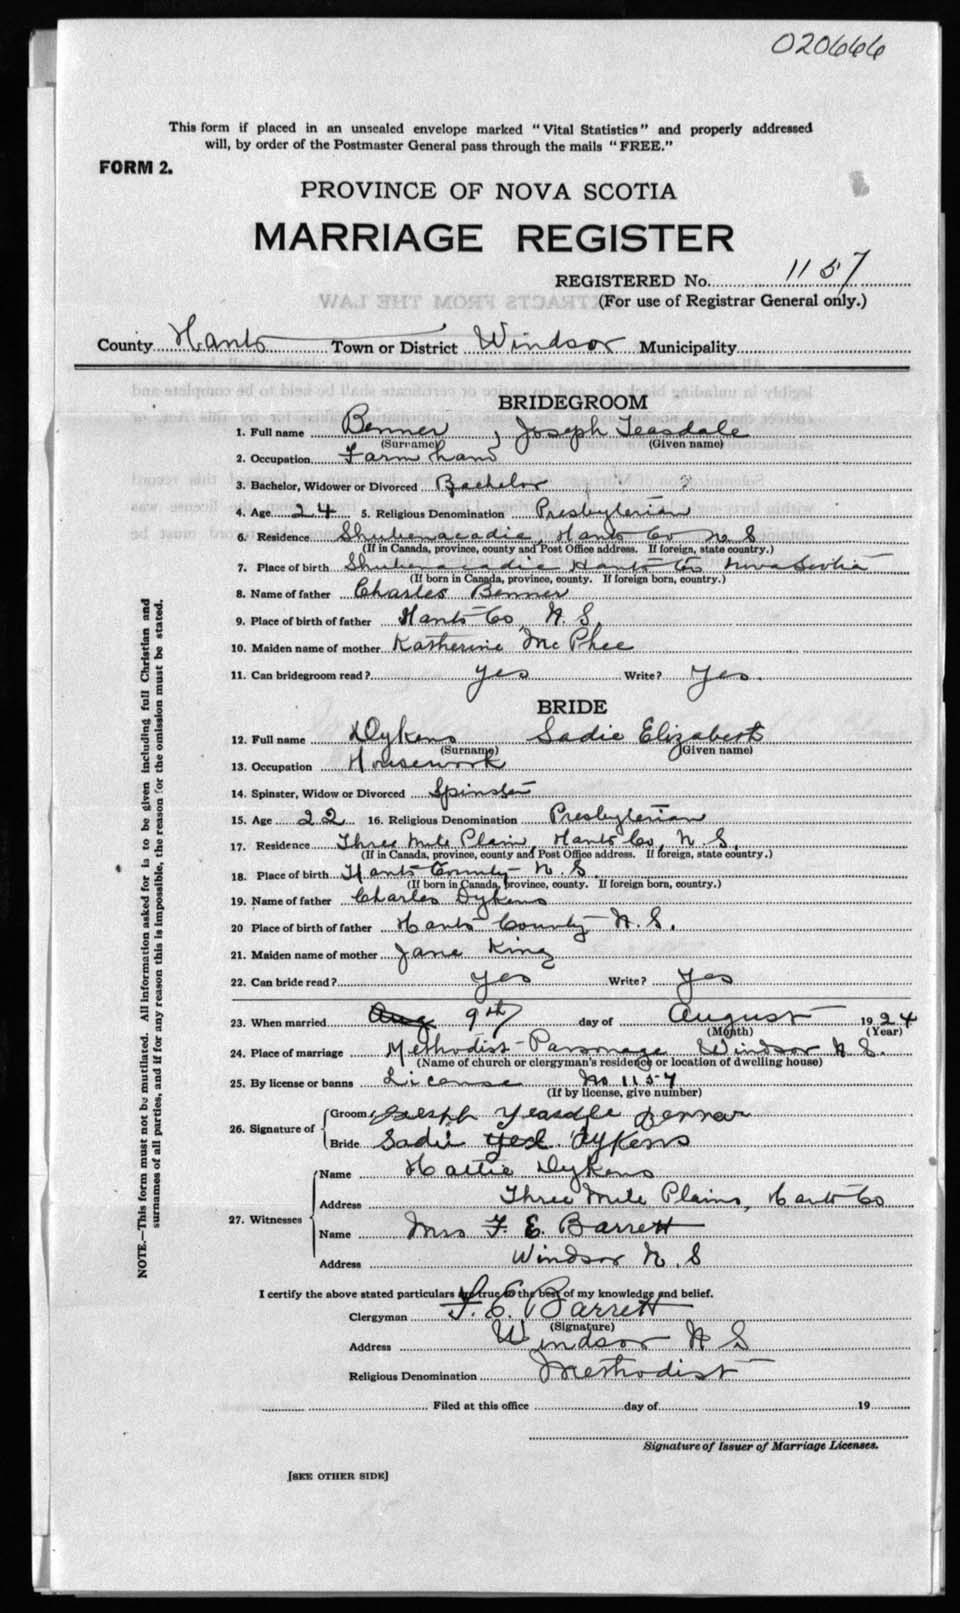 020666
This form if placed in an unsealed envelope marked "Vital Statistics" and properly addressed
will, by order of the Postmaster General pass through the mails "FREE."
FORM 2.
PROVINCE OF NOVA SCOTIA
MARRIAGE REGISTER
REGISTERED No. 1157
(For use of Registrar General only.)
County Hants Town or District Windsor Municipality
BRIDEGROOM
1. Full name Benner, Joseph Teasdale
(Surname) (Given name)
2. Occupation Farm hand
3. Bachelor, Widower or Divorced Bachelor ?
4. Age 24 5. Religious Denomination Presbyterian
6. Residence Shubenacadie, Hants Co N S
(If in Canada, province, county and Post Office address. If foreign, state country.)
7. Place of birth Shubenacadie Hants Co Nova Scotia
(If born in Canada, province, county. If foreign born, country.)
8. Name of father Charles Benner
9. Place of birth of father Hants Co, N. S.
10. Maiden name of mother Katherine McPhee
11. Can bridegroom read? Yes Write? Yes.
BRIDE
12. Full name Dykens Sadie Elizabeth
(Surname) (Given name)
13. Occupation Housework
14. Spinster, Widow or Divorced Spinster
15. Age 22 16. Religious Denomination Presbyterian
17. Residence Three Mile Plain, Hants Co, N. S.
(If in Canada, province, county and Post Office address. If foreign, state country.)
18. Place of birth Hants County N. S.
(If born in Canada, province, county. If foreign born, country.)
19. Name of father Charles Dykens
20 Place of birth of father Hants County N. S.
21. Maiden name of mother Jane King
22. Can bride read? Yes Write? Yes
23. When married Aug 9th day of August 1924
(Month) (Year)
24. Place of marriage Methodist Parsonage Windsor N S.
(Name of church or clergyman's residence or location of dwelling house)
25. By license or banns License No 1157
(If by license, give number)
26. Signature of Groom Joseph Yeasdle Benner
Bride Sadie Dykens
27. Witnesses
Name Hattie Dykens
Address Three Mile Plains, Hants Co
Name Mrs F. E. Barrett
Address Windsor N. S
I certify the above stated particulars are true to the best of my knowledge and belief.
Clergyman F. E. Barrett
(Signature)
Address Windsor N S
Religious Denomination Methodist
Filed at this office day of 19
Signature of Issuer of Marriage Licenses.
[SEE OTHER SIDE]
NOTE.—This form must not be mutilated. All information asked for is to be given including full Christian and
surnames of all parties, and if for any reason this is impossible, the reason for the omission must be stated.